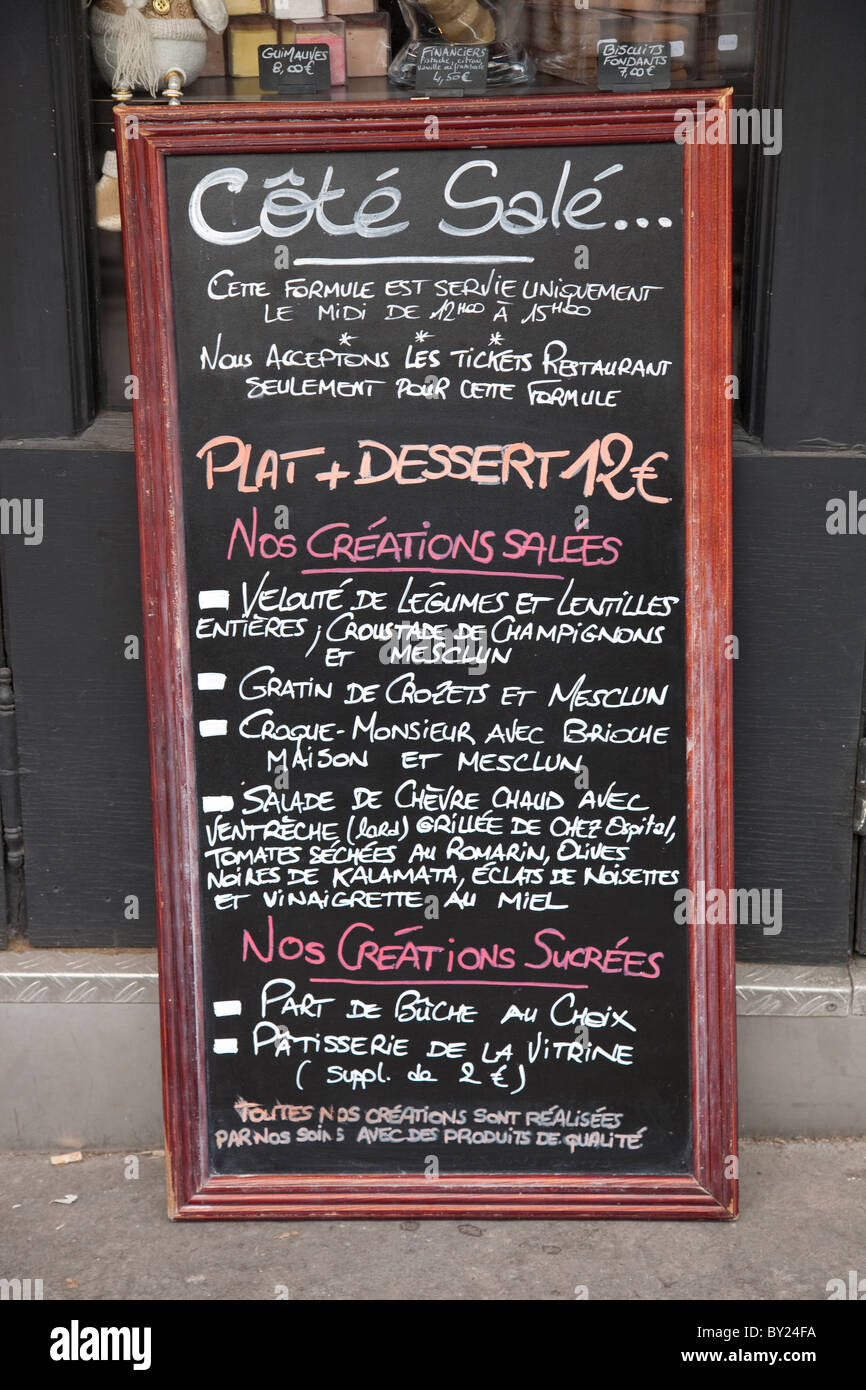 GUIMAUVES
8,00€
FINANCIERS
Pistache, citron,
vanille ou framboise
4,50€
BISCUITS
FONDANTS
7,00€
Côté Salé...
CETTE FORMULE EST SERVIE UNIQUEMENT
LE MIDI DE 12H00 À 15H00
* * *
NOUS ACCEPTONS LES TICKETS RESTAURANT
SEULEMENT POUR CETTE FORMULE
PLAT + DESSERT 12€
NOS CRÉATIONS SALÉES
VELOUTÉ DE LÉGUMES ET LENTILLES
ENTIÈRES ; CROUSTADE DE CHAMPIGNONS
ET MESCLUN
GRATIN DE CROZETS ET MESCLUN
CROQUE-MONSIEUR AVEC BRIOCHE
MAISON ET MESCLUN
SALADE DE CHÈVRE CHAUD AVEC
VENTRÈCHE (lard) GRILLÉE DE CHEZ Ospital,
TOMATES SÉCHÉES AU ROMARIN, OLIVES
NOIRES DE KALAMATA, ÉCLATS DE NOISETTES
ET VINAIGRETTE AU MIEL
NOS CRÉATIONS SUCRÉES
PART DE BÛCHE AU CHOIX
PÂTISSERIE DE LA VITRINE
( suppl. de 2 € )
TOUTES NOS CRÉATIONS SONT RÉALISÉES
PAR NOS SOINS AVEC DES PRODUITS DE QUALITÉ
alamy
Image ID: BY24FA
www.alamy.com